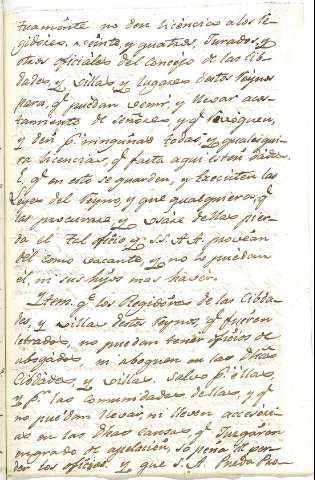 tuamente no den licencias a los re-
gidores, veinte, y quatros, Jurados, y
otros oficiales del Concejo de las Cib-
dades, y villas, y lugares destos Reynos
para, q̃ puedan venir, y llevar acos-
tamiento de señores, y q̃ revoquen,
y den p. ningunas todas, y qualesqui-
ra licencias, q̃ fasta aqui esten dadas.
E, q̃ en esto se guarden, y executen las
Leyes del Reyno, y que qualquiera, q̃
las procurare, y usare dellas pier-
da el tal oficio, y S.S. A.A. provean
dél como vacante, y no lo puedan
él, ni sus hijos mas haver.
Item. q̃ los Regidores de las Cibda-
des, y villas destos Reynos, q̃ fueren
letrados, no puedan tener oficios de
abogados ni aboguen en las dhas
Cibdades, y villas. Salvo p. ellas,
y p. las comunidades dellas, y q̃
no puedan llevar, ni lleven accesorias
en las dhas causas q̃ Juzgaren
en grado de apelacion, so pena de per-
der los oficios. y que S. A. Pueda Pro-